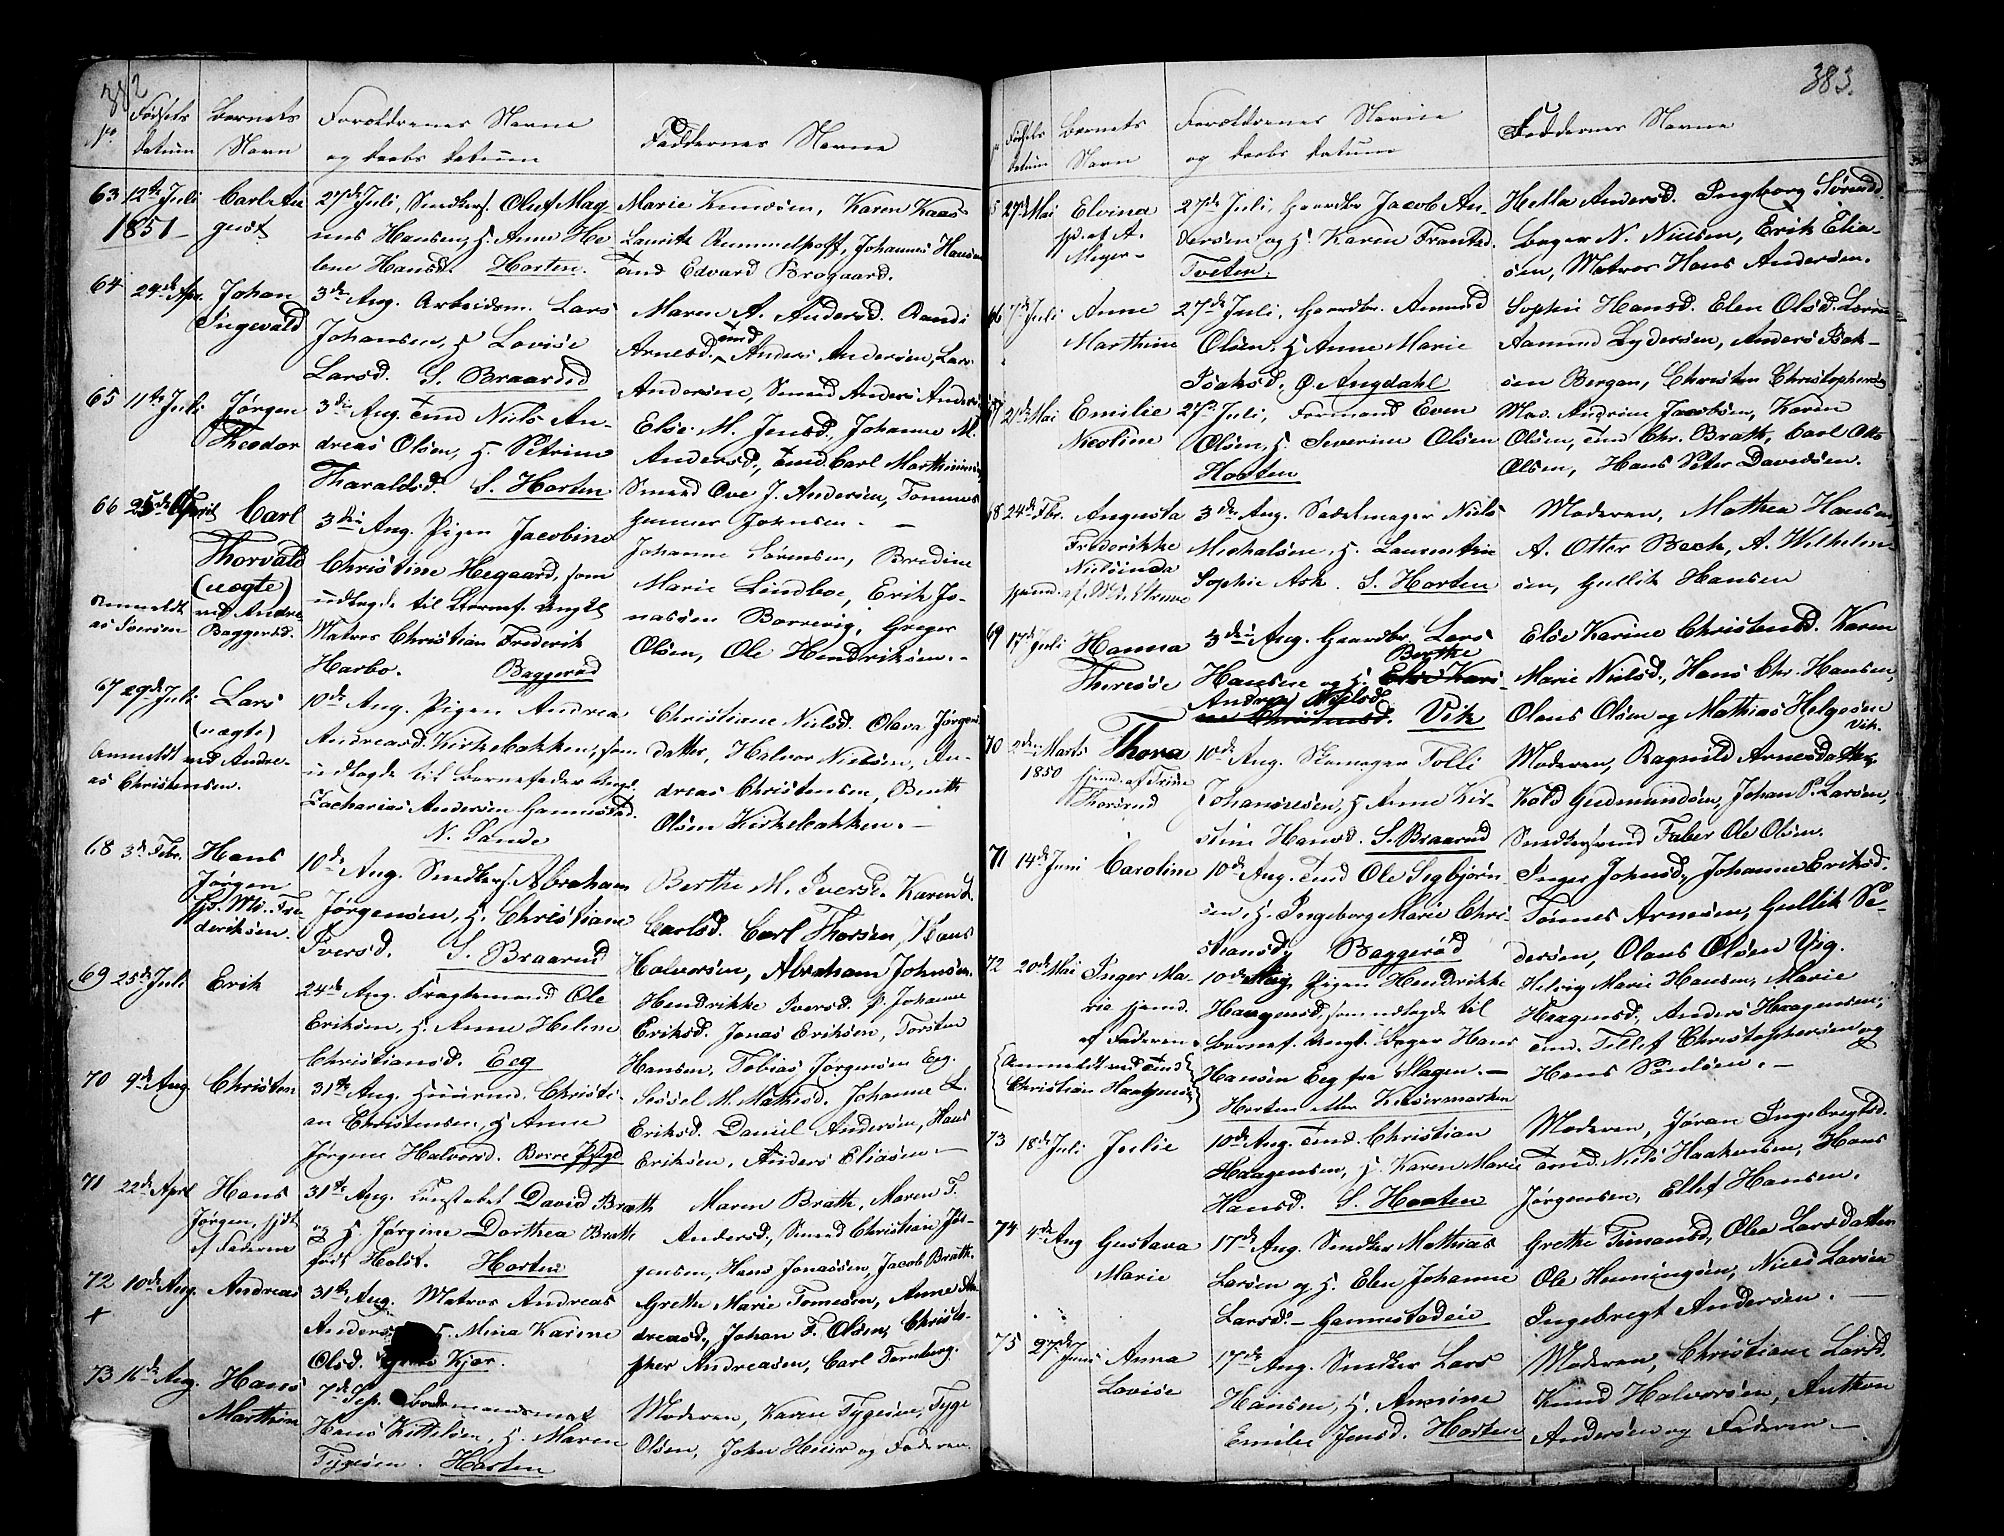 382
No Fødsels Datum
Barnets Navn
Forældrenes Navne og Daabs Datum
Faddernes Navne
63 12te Juli 1851
Carl August
27de Juli, Snedkers. Oluf Mag-
nus Hansen, H. Anne He-
lene Hansd. Horten.
Marie Knudsen, Karen Kaas
Lauritz Rummelhoff, Johannes Hansen
Tmd Edvard Brogaard.
64 24de Apr.
Johan
Ingevald
3die Aug. Arbeidsm. Lars
Johansen, H. Lovise
Larsd. S. Braarød
Maren A. Andersd. Randi
Arnesd. Tmd Anders Andersen, Lars
Andersen, Smmd Anders Anders
65 11te Juli
Jørgen
Theodor
3die Aug. Tmd Niels An-
dreas Olsen, H. Petrine
Tharaldsd. S. Horten
Else M. Jensd. Johanne M.
Andersd., Tmd. Carl Marthinsen
Smmd Ove J. Andersen, Tommes
Gunner Johnsen. —
66 25de April
Carl
Thorvald
(uægte)
Anmeldt ved Andre-
as Iversen Baggerød.
3die Aug. Pigen Jacobine
Christine Hegaard, som
udlagde til Barnef. Ungkl
Matros Christian Frederik
Harbo. Baggerød
Johanne Sørensen, Bredine
Marie Lindboe, Erik Jo-
nassen Borrevig, Greger
Olsen, Ole Hendriksen. -
67 29de Juli
Lars
(uægte)
Anmeldt ved Andre-
as Christensen.
10de Aug. Pigen Andrea
Andreasd. Kirkebakken, som
udlagde til Barnefader Ungk.
Zacharias Andersen Gannestad.
N. Sande
Christiane Nielsd. Olava Jørgens
datter, Halvor Nielsen, An-
dreas Christensen, Bernth
Olsen Kirkebakken. —
68 3de Febr.
Hans
Jørgen
hjd. Md. Fre-
deriksen.
10de Aug. Snedkers. Abraham
Jørgensen, H. Christiane
Iversd. S. Braarød
Berthe M. Iversd. Karen L.
Carlsd. Carl Thorsen, Hans
Halvorsen, Abraham Johnsen.
69 25de Juli
Erik
24de Aug. Fragtemand Ole
Eriksen, H. Anne Helene
Christiansd. Eeg
Hendrikke Iversd. p. Johanne
Eriksd. Jonas Eriksen, Torsten
Hansen, Tobias Jørgensen Eeg.
70 9de Aug.
Christen
31te Aug. Huusmd. Christi-
an Christensen, H. Anne
Jørgine Halvorsd. Borre Pjtgd
Sessel M. Mathisd. Johanne L.
Eriksd. Daniel Andersen, Hans
Eriksen, Anders Eliasen —
71 22de April
Hans
Jørgen, hjdt
af Faderen
31te Aug. Konstabel David Brath
og H. Jørgine Dorthea Brath
født Holst. Horten
Maren Brath, Maren T.
Andersd., Smmd Christian Jør-
gensen, Hans Jonassen, Jacob Brath.
72 10de Aug.
+
Andreas
31te Aug. Matros Andreas
Anders H. Mina Karine
Olsd. Kjær.
Grethe Marie Tomesen, Anne An-
dreasd., Johan F. Olsen, Christo-
pher Andreasen, Carl Fernberg.
73 16de Aug.
Hans
Marthin
7de Sep. Baadsmandsmat
Hans Kittelsen, H. Maren
Tygesen. Horten
Moderen, Karen Tygesen, Tyge
Olsen, John Heier og Faderen.
383.
No Fødsels Datum
Barnets Navn
Forældrenes Navne og Daabs Datum
Faddernes Navne
5 27de Mai
Elvina
hjd. af A.
Meyer -
27de Juli, Gaardbr Jacob An-
dersen og H. Karen Frantsd.
Tveten.
Hella Andersd. Ingborg Sørensd.
Bager N. Nielsen, Erik Elia-
sen, Matros Hans Andersen.
66 7de Juli
Anne
Marthine
27de Juli, Gaardbr. Amund
Olsen, H. Anne Marie
Isaksd. Ø. Augdahl
Sophie Hansd. Elen Olsd. Loren
Aamund Lydersen, Anders Isak-
sen Bergan, Christen Christophersen
67 21de Mai
Emilie
Nicoline
27de Juli, Formand Even
Olsen, H. Severine Olsen
Horten
Mad. Andrine Jacobsen, Karen
Olsen, Tmd Chr. Brath, Carl Otto
Olsen, Hans Peter Davidsen.
68 24de Fbr.
Augusta
Frederikke
Nielsinda
3die Aug. Sadelmager Niels
Michalsen, H. Laurentine
Sophie Ask. S. Horten
Moderen, Mathea Hansen,
A. Otter Bech, A. Wilhelm-
sen, Gullik Hansen
69 17de Juli
Hanna
Theresse
3die Aug. Gaardbr. Lars
Hansen og H. Berthe
Andrea Nielsd. Vik
Else Karine Christensd. Karen
Marie Nielsd., Hans Chr. Hansen,
Olaus Olsen og Mathias Helgesen
Vik.
70 2den Marts
1850
Thora
hjemd. af Trine
Thorsrud
10de Aug. Skomager Tolli
Johannesen, H. Anne Kir-
stine Hansd. S. Braarød
Moderen, Ragnild Arnesdatter,
Kold Gudmundsen, Johan P. Larsen,
Snedkersvend Faber Ole Olsen.
71 14de Juni
Caroline
10de Aug. Tmd Ole Sigbjørn-
sen, H. Ingeborg Marie Chri-
stiansd, Baggerød
Inger Johnsd, Johanne Eriksd.
Tønnes Arnesen, Gullik Pe-
dersen, Olaus Olsen Vig.
72 20de Mai
Inger Ma-
rie hjemd.
af Faderen.
(Anmeldt ved Tmd
Christian Haagensen)
10de Aug, Pigen Hendrikke
Haagensd. som udlagde til
Barnef. Ungk. Bager Hans
Hansen Eeg fra Slagen. —
Horten eller Keisermarken
Helvig Marie Hansen, Marie
Haagensd. Anders Haagensen,
Tmd. Tellef Christophersen og
Hans Poulsen. -
73 18de Juli
Julie
10de Aug. Tmd. Christian
Haagensen, H. Karen Marie
Hansd. S. Horten
Moderen, Jøran Ingebregtsd.
Tmd. Niels Haakensen, Hans
Jørgensen, Ellef Hansen.
74 4de Aug
Gustava
Marie
17de Aug. Snedker Mathias
Larsen og H. Elen Johanne
Larsd. — Gannestadeie
Grethe Timansd, Olea Larsdatter
Ole Hemmingsen, Niels Larsen
Ingebregt Andersen. —
75 27de Juni
Anna
Lovise
17de Aug. Snedker Lars
Hansen, H. Annine
Emilie Jensd. Horten
Moderen, Christiane Larsd.
Knud Halvorsen, Anthon
Andersen og Faderen —